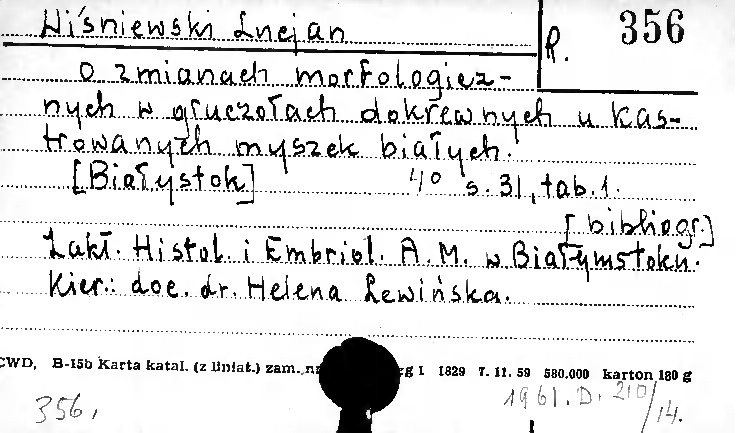 Wiśniewski Lucjan
R. 356
O zmianach morfologicz-
nych w gruczołach dokrewnych u kas-
trowanych myszek białych.
[Białystok] 4° s. 31, tab. 1.
[bibliogr.]
Zakł. Histol. i Embriol. A. M. w Białymstoku.
Kier.: doc. dr. Helena Lewińska.
CWD, B-15b Karta katal. (z liniat.) zam. 1829 T. 11. 59 580.000 karton 180 g
356, 1961. D. 210/14.